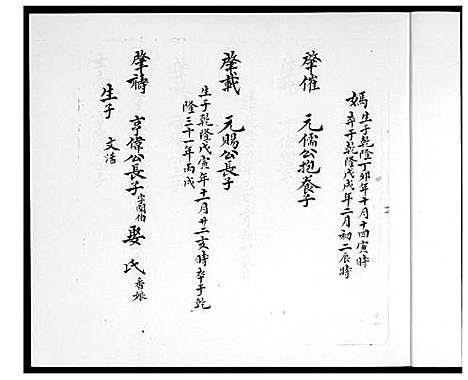 媽 生于乾隆丁卯年十月十四寅時
卒于乾隆戊戌年二月初二辰時
肇催 元儒公抱養子
肇載 元賜公長子
生于乾隆戊寅年十一月廿二亥時卒于乾
隆三十一年丙戌
肇禱 亨偉公長子 娶 氏 香娘
生子 文活